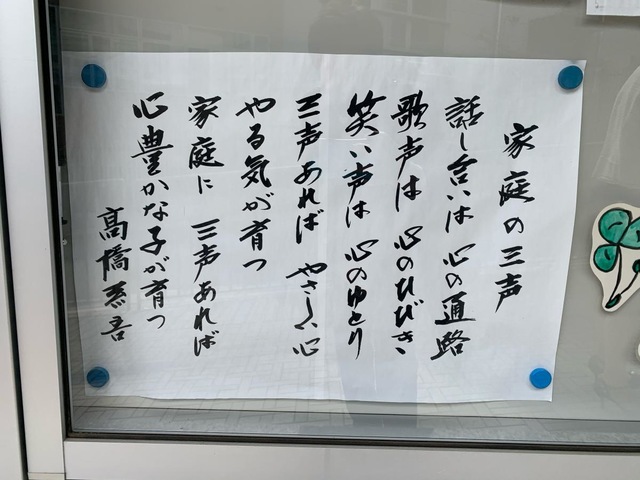 家庭の三声
話し合いは 心の通路
歌声は 心のひびき
笑い声は 心のゆとり
三声あれば やさしい心
やる気が育つ
家庭に 三声あれば
心豊かな子が育つ
高橋恭吾